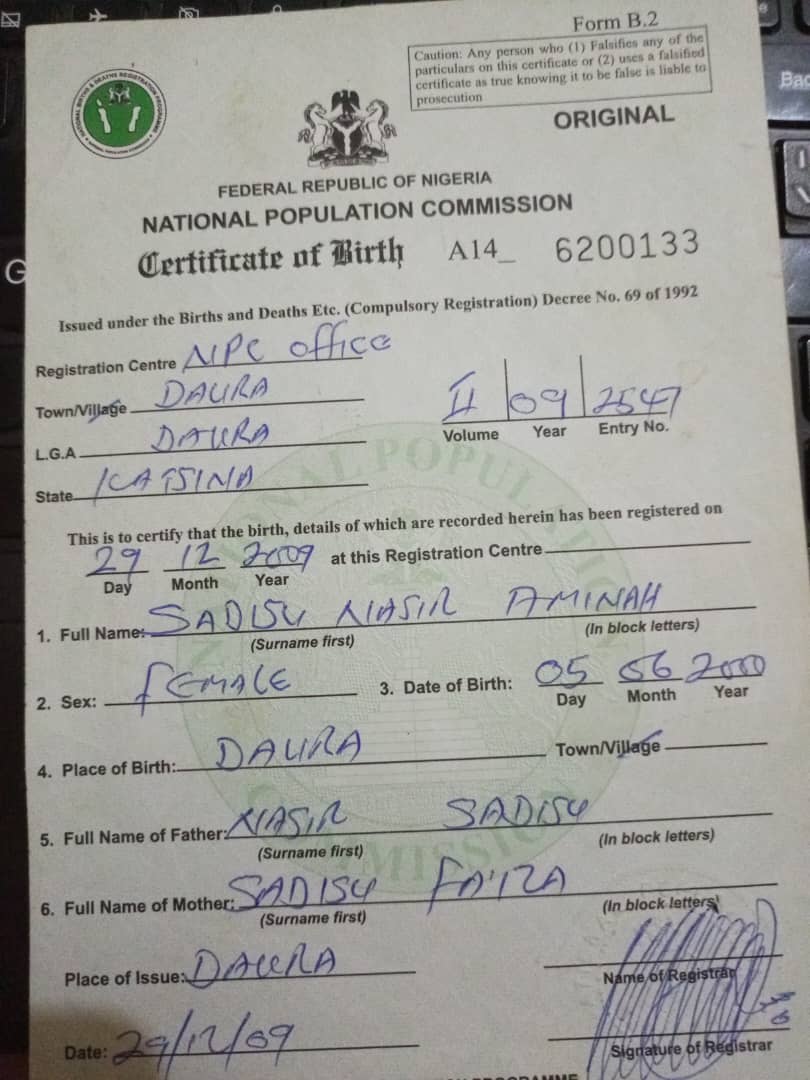 Form B.2
Caution: Any person who (1) Falsifies any of the
particulars on this certificate or (2) uses a falsified
certificate as true knowing it to be false is liable to
prosecution
ORIGINAL
NATIONAL BIRTHS & DEATHS REGISTRATION PROGRAMME
NATIONAL POPULATION COMMISSION
FEDERAL REPUBLIC OF NIGERIA
NATIONAL POPULATION COMMISSION
Certificate of Birth A14_ 6200133
Issued under the Births and Deaths Etc. (Compulsory Registration) Decree No. 69 of 1992
Registration Centre NPC office
Town/Village DAURA
L.G.A DAURA
State KATSINA
II 09 2547
Volume Year Entry No.
This is to certify that the birth, details of which are recorded herein has been registered on
29 12 2009 at this Registration Centre
Day Month Year
1. Full Name: SADISU NASIR AMINAH
(Surname first) (In block letters)
2. Sex: FEMALE 3. Date of Birth: 05 06 2000
Day Month Year
4. Place of Birth: DAURA Town/Village
5. Full Name of Father: NASIR SADISU
(Surname first) (In block letters)
6. Full Name of Mother: SADISU FA'IZA
(Surname first) (In block letters)
Place of Issue: DAURA Name of Registrar
Date: 29/12/09 Signature of Registrar